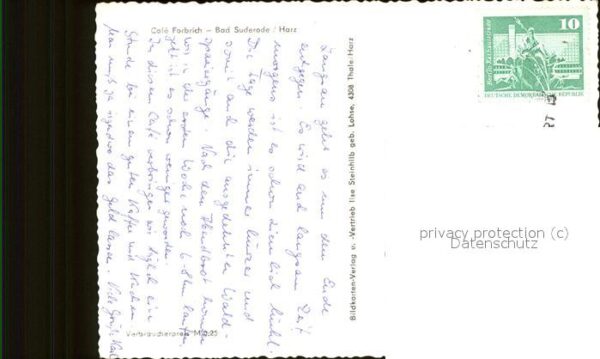 Café Forbrich – Bad Suderode / Harz
Langsam geht es nun dem Ende
entgegen. Es wird auch langsam Zeit
morgens ist es schon ziemlich kühl.
Die Tage werden immer kürzer und
somit auch die ausgedehnten Wald-
spaziergänge. Nach dem Abendbrot konnten
wir in der ersten Woche noch laufen
jetzt ist es schon weniger geworden.
In diesem Café verbringen wir täglich ein
Stunde bei einem guten Kaffee und Kuchen
Man muß ja irgendwo das Geld lassen. Viele Grüße
Verbraucherpreis M 0,25
Bildkarten-Verlag u. -Vertrieb Ilse Steinhilb geb. Lohse, 4308 Thale/Harz
10
DEUTSCHE DEMOKRATISCHE REPUBLIK
privacy protection (c)
Datenschutz